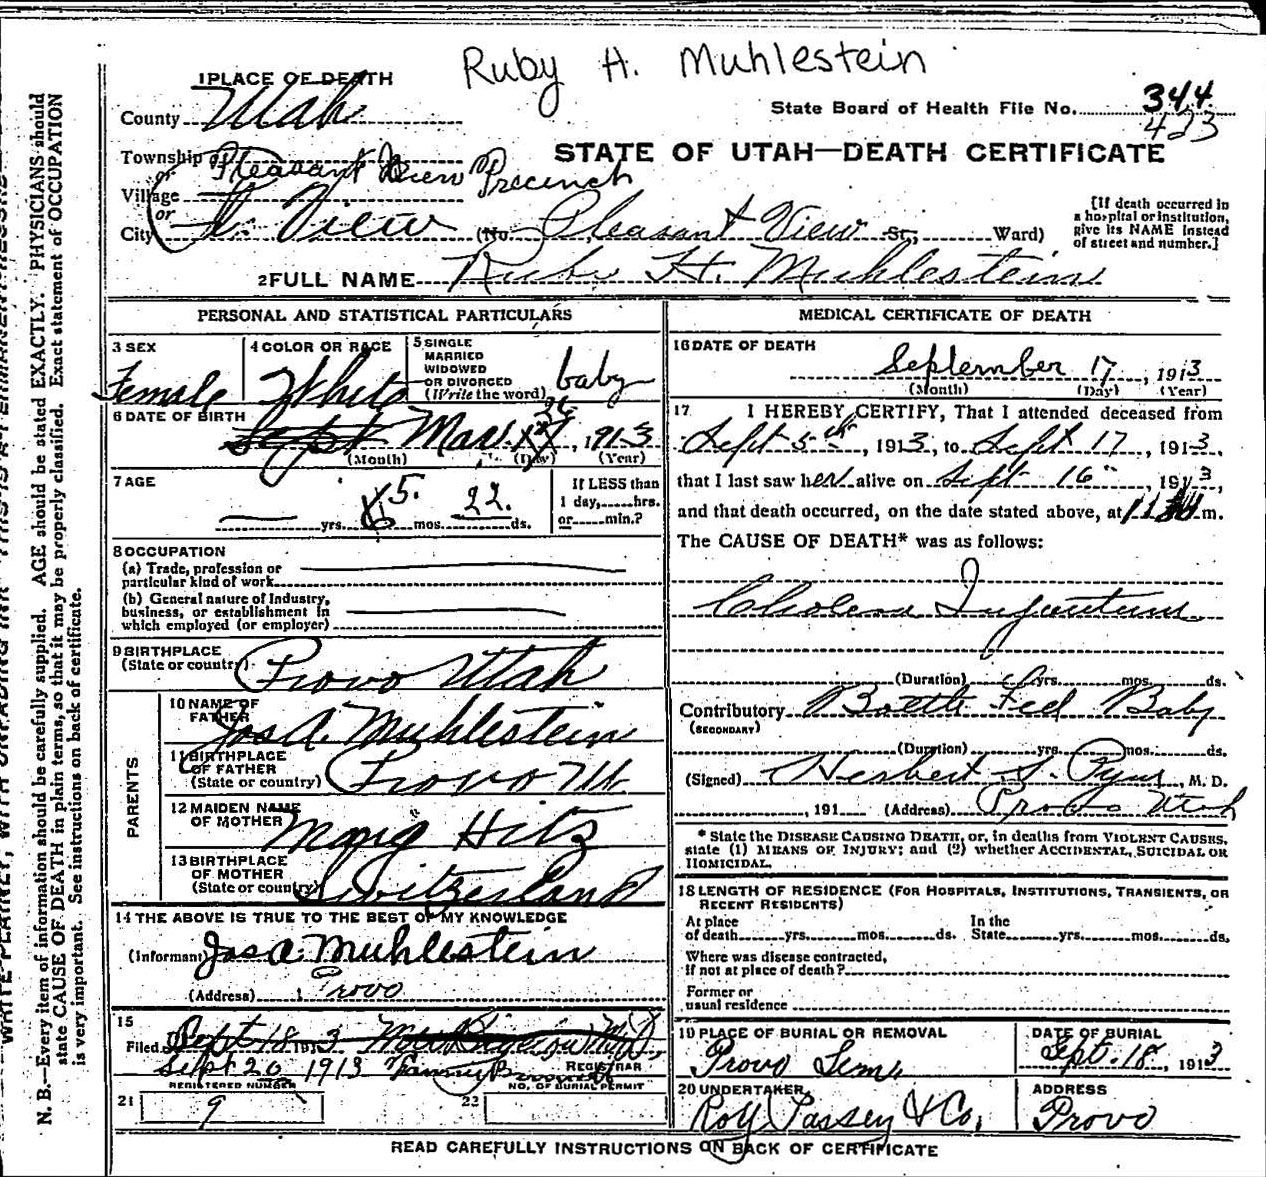 Ruby H. Muhlestein
1 PLACE OF DEATH
County Utah
State Board of Health File No. 344
423
Township or Pleasant View Precinct
STATE OF UTAH—DEATH CERTIFICATE
or
Village
or
City View (No. Pleasant View St., Ward)
[If death occurred in
a hospital or institution,
give its NAME instead
of street and number.]
2 FULL NAME Ruby H. Muhlestein
PERSONAL AND STATISTICAL PARTICULARS
3 SEX
Female
4 COLOR OR RACE
White
5 SINGLE
MARRIED
WIDOWED
OR DIVORCED
(Write the word) baby
6 DATE OF BIRTH
Sept Mar. 26, 1913
(Month) (Day) (Year)
7 AGE
yrs. 5. mos. 22. ds.
If LESS than
1 day, hrs.
or min.?
8 OCCUPATION
(a) Trade, profession or
particular kind of work
(b) General nature of Industry,
business, or establishment in
which employed (or employer)
9 BIRTHPLACE
(State or country) Provo Utah
PARENTS
10 NAME OF
FATHER Jos A. Muhlestein
11 BIRTHPLACE
OF FATHER
(State or country) Provo Ut
12 MAIDEN NAME
OF MOTHER Mary Hitz
13 BIRTHPLACE
OF MOTHER
(State or country) Switzerland
14 THE ABOVE IS TRUE TO THE BEST OF MY KNOWLEDGE
(Informant) Jos A. Muhlestein
(Address) Provo
15
Filed Sept 18 1913
Sept 20 1913
REGISTRAR
REGISTERED NUMBER
NO. OF BURIAL PERMIT
21 9
22
MEDICAL CERTIFICATE OF DEATH
16 DATE OF DEATH
September 17, 1913
(Month) (Day) (Year)
17 I HEREBY CERTIFY, That I attended deceased from
Sept 5th, 1913, to Sept 17, 1913,
that I last saw her alive on Sept 16, 1913,
and that death occurred, on the date stated above, at m.
The CAUSE OF DEATH* was as follows:
Cholera Infantum
(Duration) yrs. mos. ds.
Contributory Bottle Fed Baby
(SECONDARY)
(Duration) yrs. mos. ds.
(Signed) Herbert S. Pyne, M. D.
, 191 (Address) Provo Utah
* State the DISEASE CAUSING DEATH, or, in deaths from VIOLENT CAUSES,
state (1) MEANS OF INJURY; and (2) whether ACCIDENTAL, SUICIDAL OR
HOMICIDAL.
18 LENGTH OF RESIDENCE (FOR HOSPITALS, INSTITUTIONS, TRANSIENTS, OR
RECENT RESIDENTS)
At place
of death yrs. mos. ds.
In the
State yrs. mos. ds.
Where was disease contracted,
If not at place of death?
Former or
usual residence
19 PLACE OF BURIAL OR REMOVAL
Provo Cem.
DATE OF BURIAL
Sept. 18, 1913
20 UNDERTAKER
Roy Passey & Co.
ADDRESS
Provo
READ CAREFULLY INSTRUCTIONS ON BACK OF CERTIFICATE
N. B.—Every item of information should be carefully supplied. AGE should be stated EXACTLY. PHYSICIANS should
state CAUSE OF DEATH in plain terms, so that it may be properly classified. Exact statement of OCCUPATION
is very important. See instructions on back of certificate.